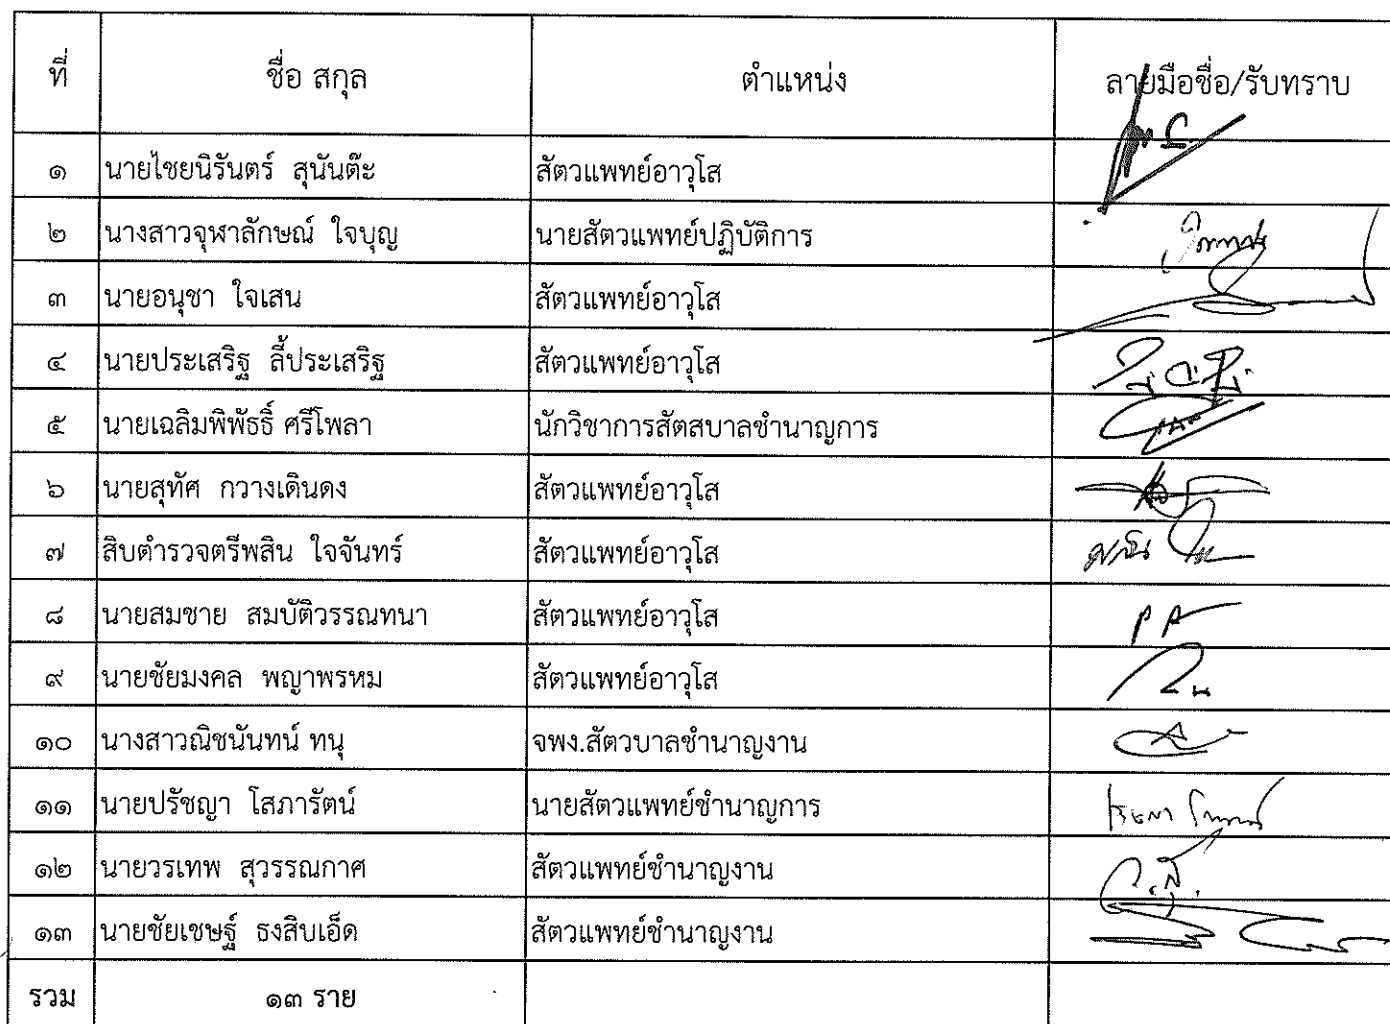 ที่ ชื่อ สกุล ตำแหน่ง ลายมือชื่อ/รับทราบ
๑ นายไชยนิรันตร์ สุนันต๊ะ สัตวแพทย์อาวุโส
๒ นางสาวจุฬาลักษณ์ ใจบุญ นายสัตวแพทย์ปฏิบัติการ
๓ นายอนุชา ใจเสน สัตวแพทย์อาวุโส
๔ นายประเสริฐ ลี้ประเสริฐ สัตวแพทย์อาวุโส
๕ นายเฉลิมพิพัธธิ์ ศรีโพลา นักวิชาการสัตสบาลชำนาญการ
๖ นายสุทัศ กวางเดินดง สัตวแพทย์อาวุโส
๗ สิบตำรวจตรีพสิน ใจจันทร์ สัตวแพทย์อาวุโส
๘ นายสมชาย สมบัติวรรณทนา สัตวแพทย์อาวุโส
๙ นายชัยมงคล พญาพรหม สัตวแพทย์อาวุโส
๑๐ นางสาวณิชนันทน์ ทนุ จพง.สัตวบาลชำนาญงาน
๑๑ นายปรัชญา โสภารัตน์ นายสัตวแพทย์ชำนาญการ
๑๒ นายวรเทพ สุวรรณกาศ สัตวแพทย์ชำนาญงาน
๑๓ นายชัยเชษฐ์ ธงสิบเอ็ด สัตวแพทย์ชำนาญงาน
รวม ๑๓ ราย